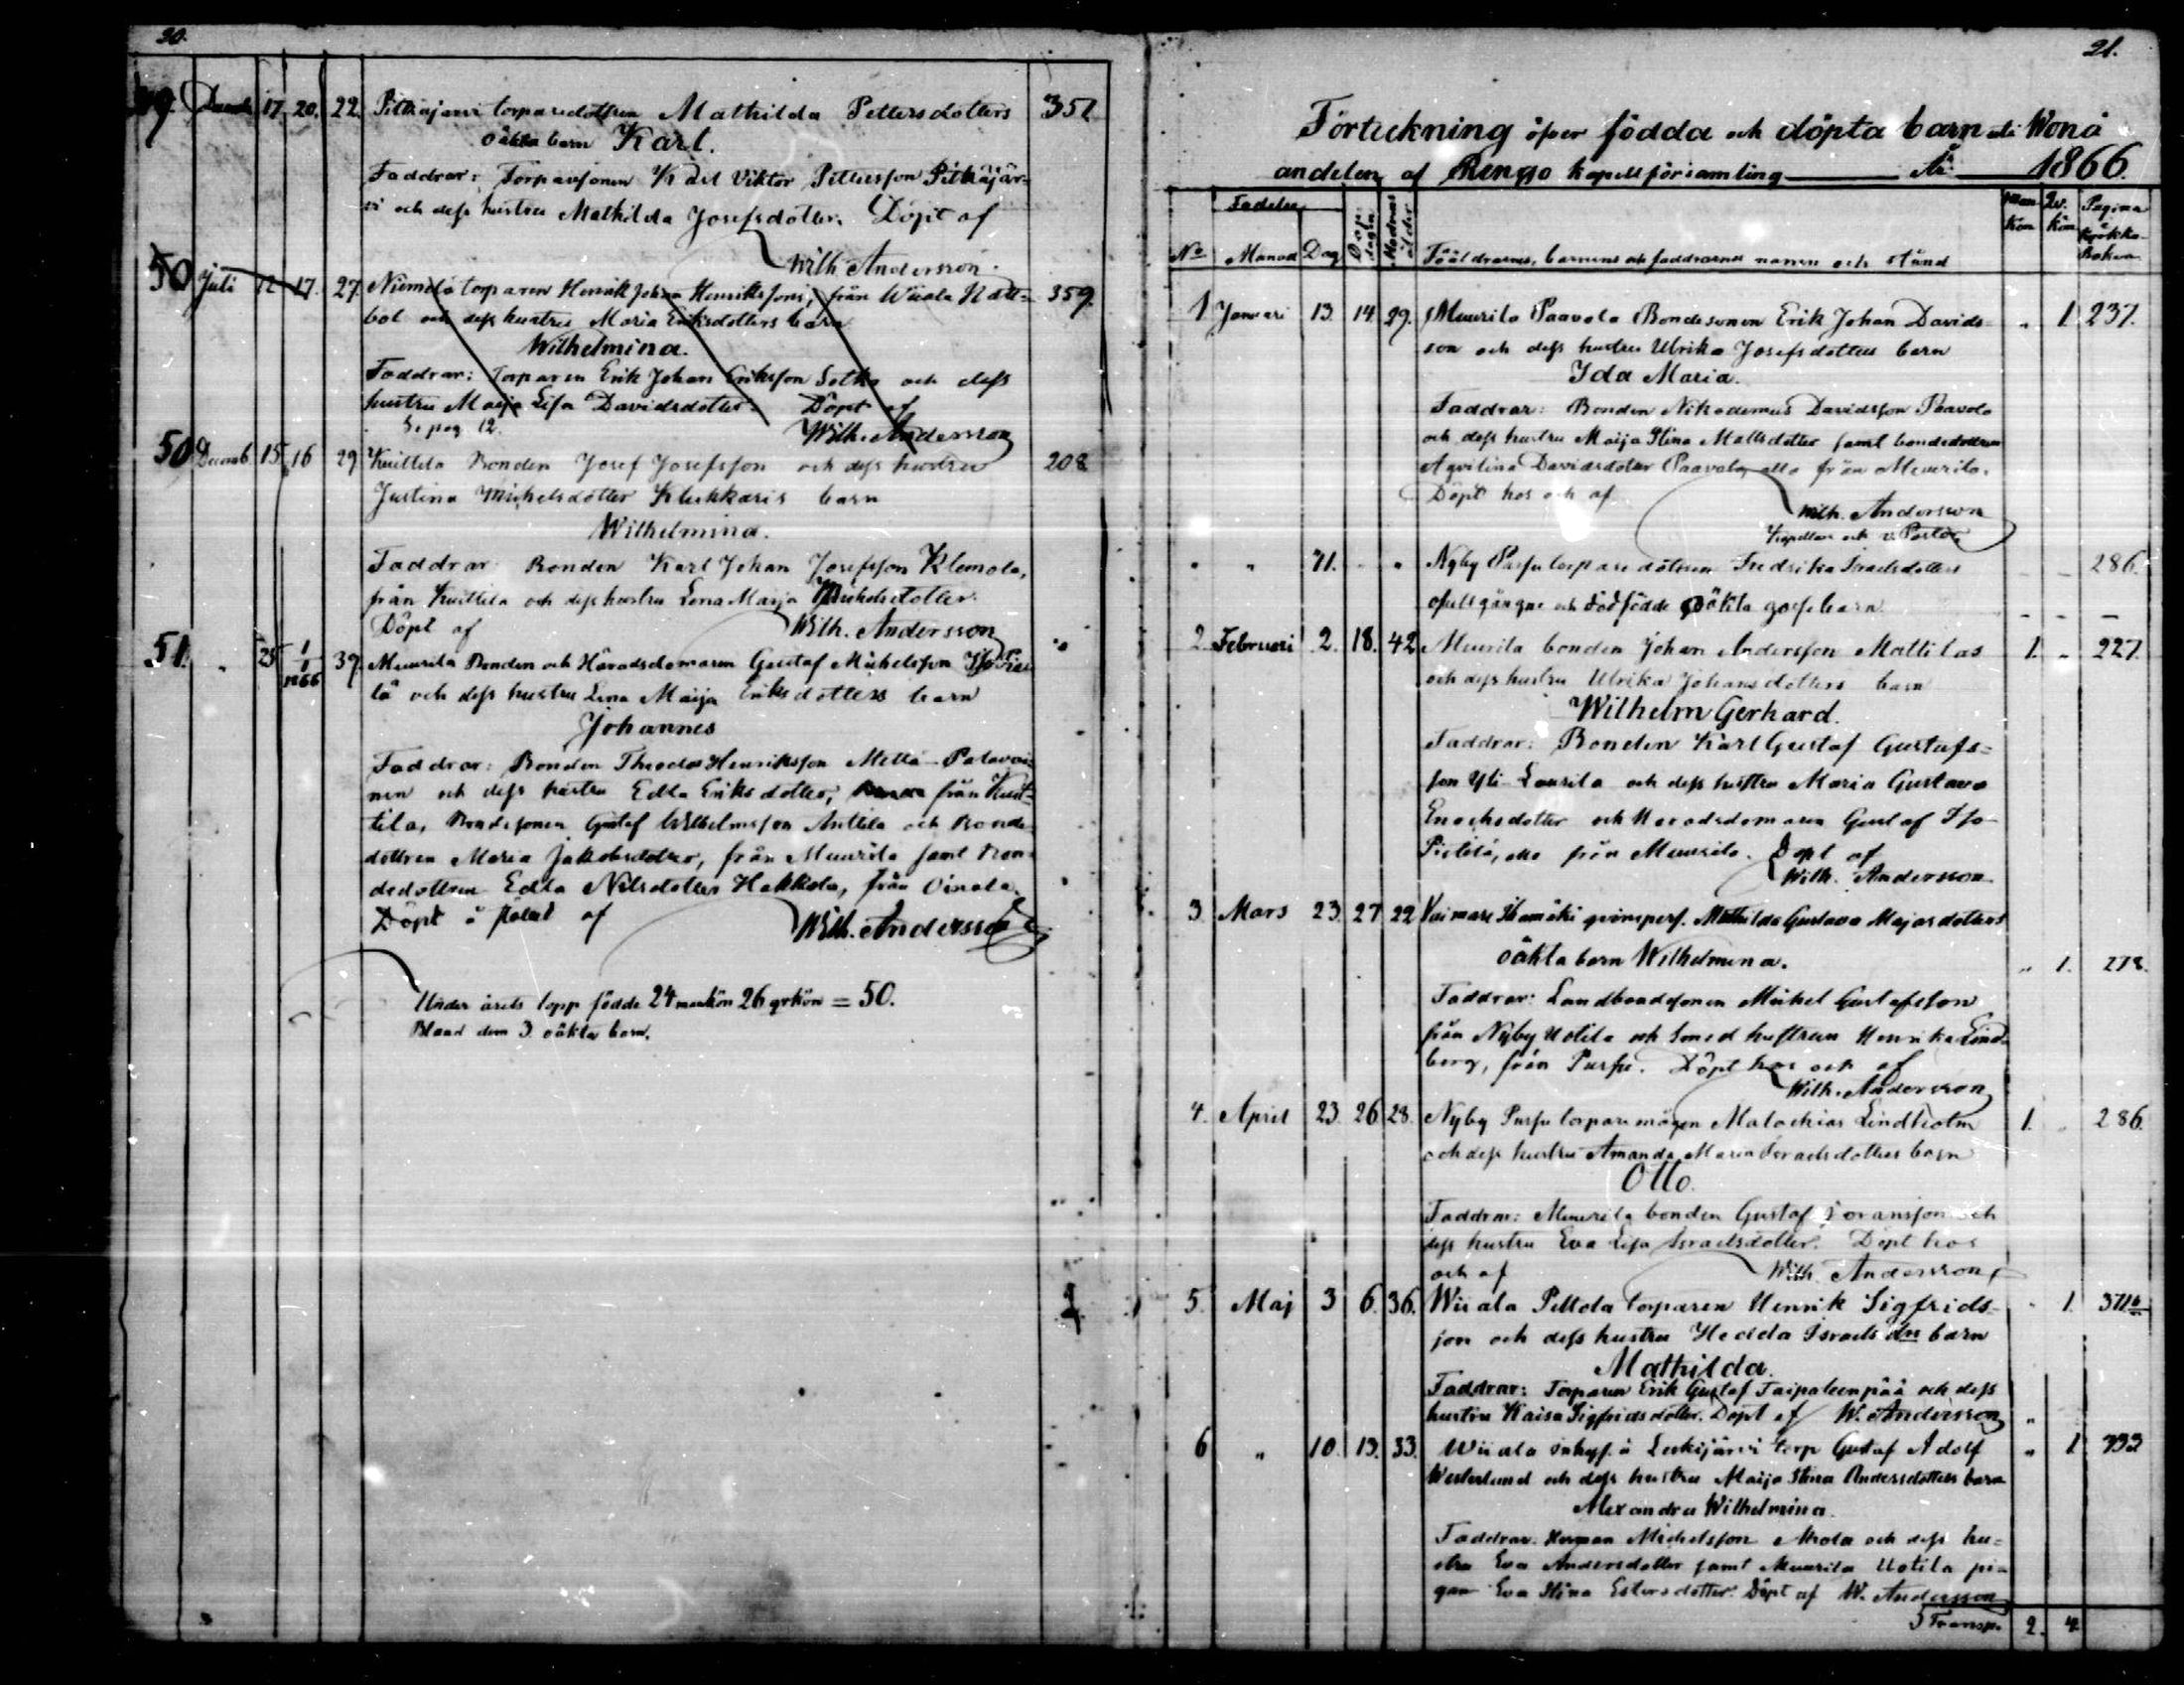 20.
49. Decemb 17. 20. 22. Pitkäjärvi torparedottren Mathilda Pettersdotters 351
oäkta barn Karl.
Faddrar: Torparsonen Karl Viktor Pettersson Pitkäjär-
vi och dess hustru Mathilda Josefsdotter. Döpt af
Wilh Andersson.
50 Juli 12 17. 27. Niemelä torparen Henrik Johan Henrikssons, från Wiiala Ratt- 359.
bol och dess hustru Maria Eriksdotters barn
Wilhelmina.
Faddrar: Torparen Erik Johan Eriksson Sotka och dess
hustru Maija Lisa Davidsdotter. Döpt af
Se pag 12. Wilh. Andersson
50 Decemb. 15 16 29 Kuittila Bonden Josef Josefsson och dess hustru 208
Justina Michelsdotter Klukkaris barn
Wilhelmina.
Faddrar: Bonden Karl Johan Josefsson Klemola,
från Kuittila och dess hustru Lena Maija Michelsdotter.
Döpt af Wilh. Andersson
51. " 25 1/1 1866 39. Muurila Bonden och Häradsdomaren Gustaf Michelsson Iso Pieti-
lä och dess hustru Lena Maija Eriksdotters barn
Johannes
Faddrar: Bonden Theodor Henriksson
nen och dess hustru Edla Eriksdotter, från Kuit-
tila, Bondesonen Gustaf Wilhelmsson Anttila och Bonde-
dottren Maria Jakobsdotter, från Muurila samt Bon-
dedottren Edla Nilsdotter Hakkola, från Oinala.
Döpt å stället af Wilh. Andersson
Under årets lopp födde 24 mankön 26 qvkön = 50.
Bland dem 3 oäkta barn.
21.
Förteckning öfver födda och döpta barn uti Wonå
andelen af Rengo Kapellförsamling År 1866.
Födelse
No Månad Dag Dopdagen Modrens ålder Föräldrarnes, barnens och faddrarnes namn och stånd Man Kön Qv. Kön Pagina i Kyrkoboken
1 Januari 13. 14. 29. Muurila Paavola Bondesonen Erik Johan Davids- " 1. 237.
son och dess hustru Ulrika Josefsdotters barn
Ida Maria.
Faddrar: Bonden Nikodemus Davidsson Paavola
och dess hustru Maija Stina Mattsdotter samt bondedottren
Aqvilina Davidsdotter Paavola, alla från Muurila.
Döpt hos och af
Wilh. Andersson
Kapellan och v. Pastor
" " 21. - " Nyby Pursu torparedotren Fredrika Israelsdotters - - 286.
ofullgångne och dödfödde oäkta gossebarn. - - -
2 Februari 2. 18. 42 Muurila bonden Johan Andersson Mattilas 1. " 227.
och dess hustru Ulrika Johansdotters barn
Wilhelm Gerhard.
Faddrar: Bonden Karl Gustaf Gustafs-
son Yli-Laurila och dess hustru Maria Gustava
Enochsdotter och Häradsdomaren Gustaf Iso-
Pietilä, alla från Muurila. Döpt af
Wilh. Andersson
3 Mars 23. 27 22 Vuimare qvinspers. Mathilda Gustava Majasdotters
oäkta barn Wilhelmina. " 1. 278.
Faddrar: Landbondsonen Michel Gustafsson
från Nyby Uotila och Smed hustrun Henrika Lind-
berg, från Pursu. Döpt hos och af
Wilh. Andersson
4. April 23. 26 28. Nyby Pursu torparemågen Malachias Lindholm 1. " 286.
och dess hustru Amanda Maria Israelsdotters barn
Otto.
Faddrar: Muurila bonden Gustaf Joransson och
dess hustru Eva Lisa Israelsdotter. Döpt hos
och af Wilh. Andersson
5. Maj 3 6. 36. Wiiala Peltola torparen Henrik Sigfrids- " 1. 371
son och dess hustru Hedda Israels drs barn
Mathilda.
Faddrar: Torparen Erik Gustaf Taipaleenpää och dess
hustru Kaisa Sigfridsdotter. Döpt af W. Andersson
6 " 10. 13. 33. Wiiala inhys. å Leskijärvi torp Gustaf Adolf " 1 393
Westerlund och dess hustru Maija Stina Andersdotters barn
Alexandra Wilhelmina.
Faddrar: Herman Michelsson Ahola och dess hu-
stru Eva Andersdotter samt Muurila Uotila pi-
gan Eva Stina Estersdotter. Döpt af W. Andersson
Transp. 2. 4